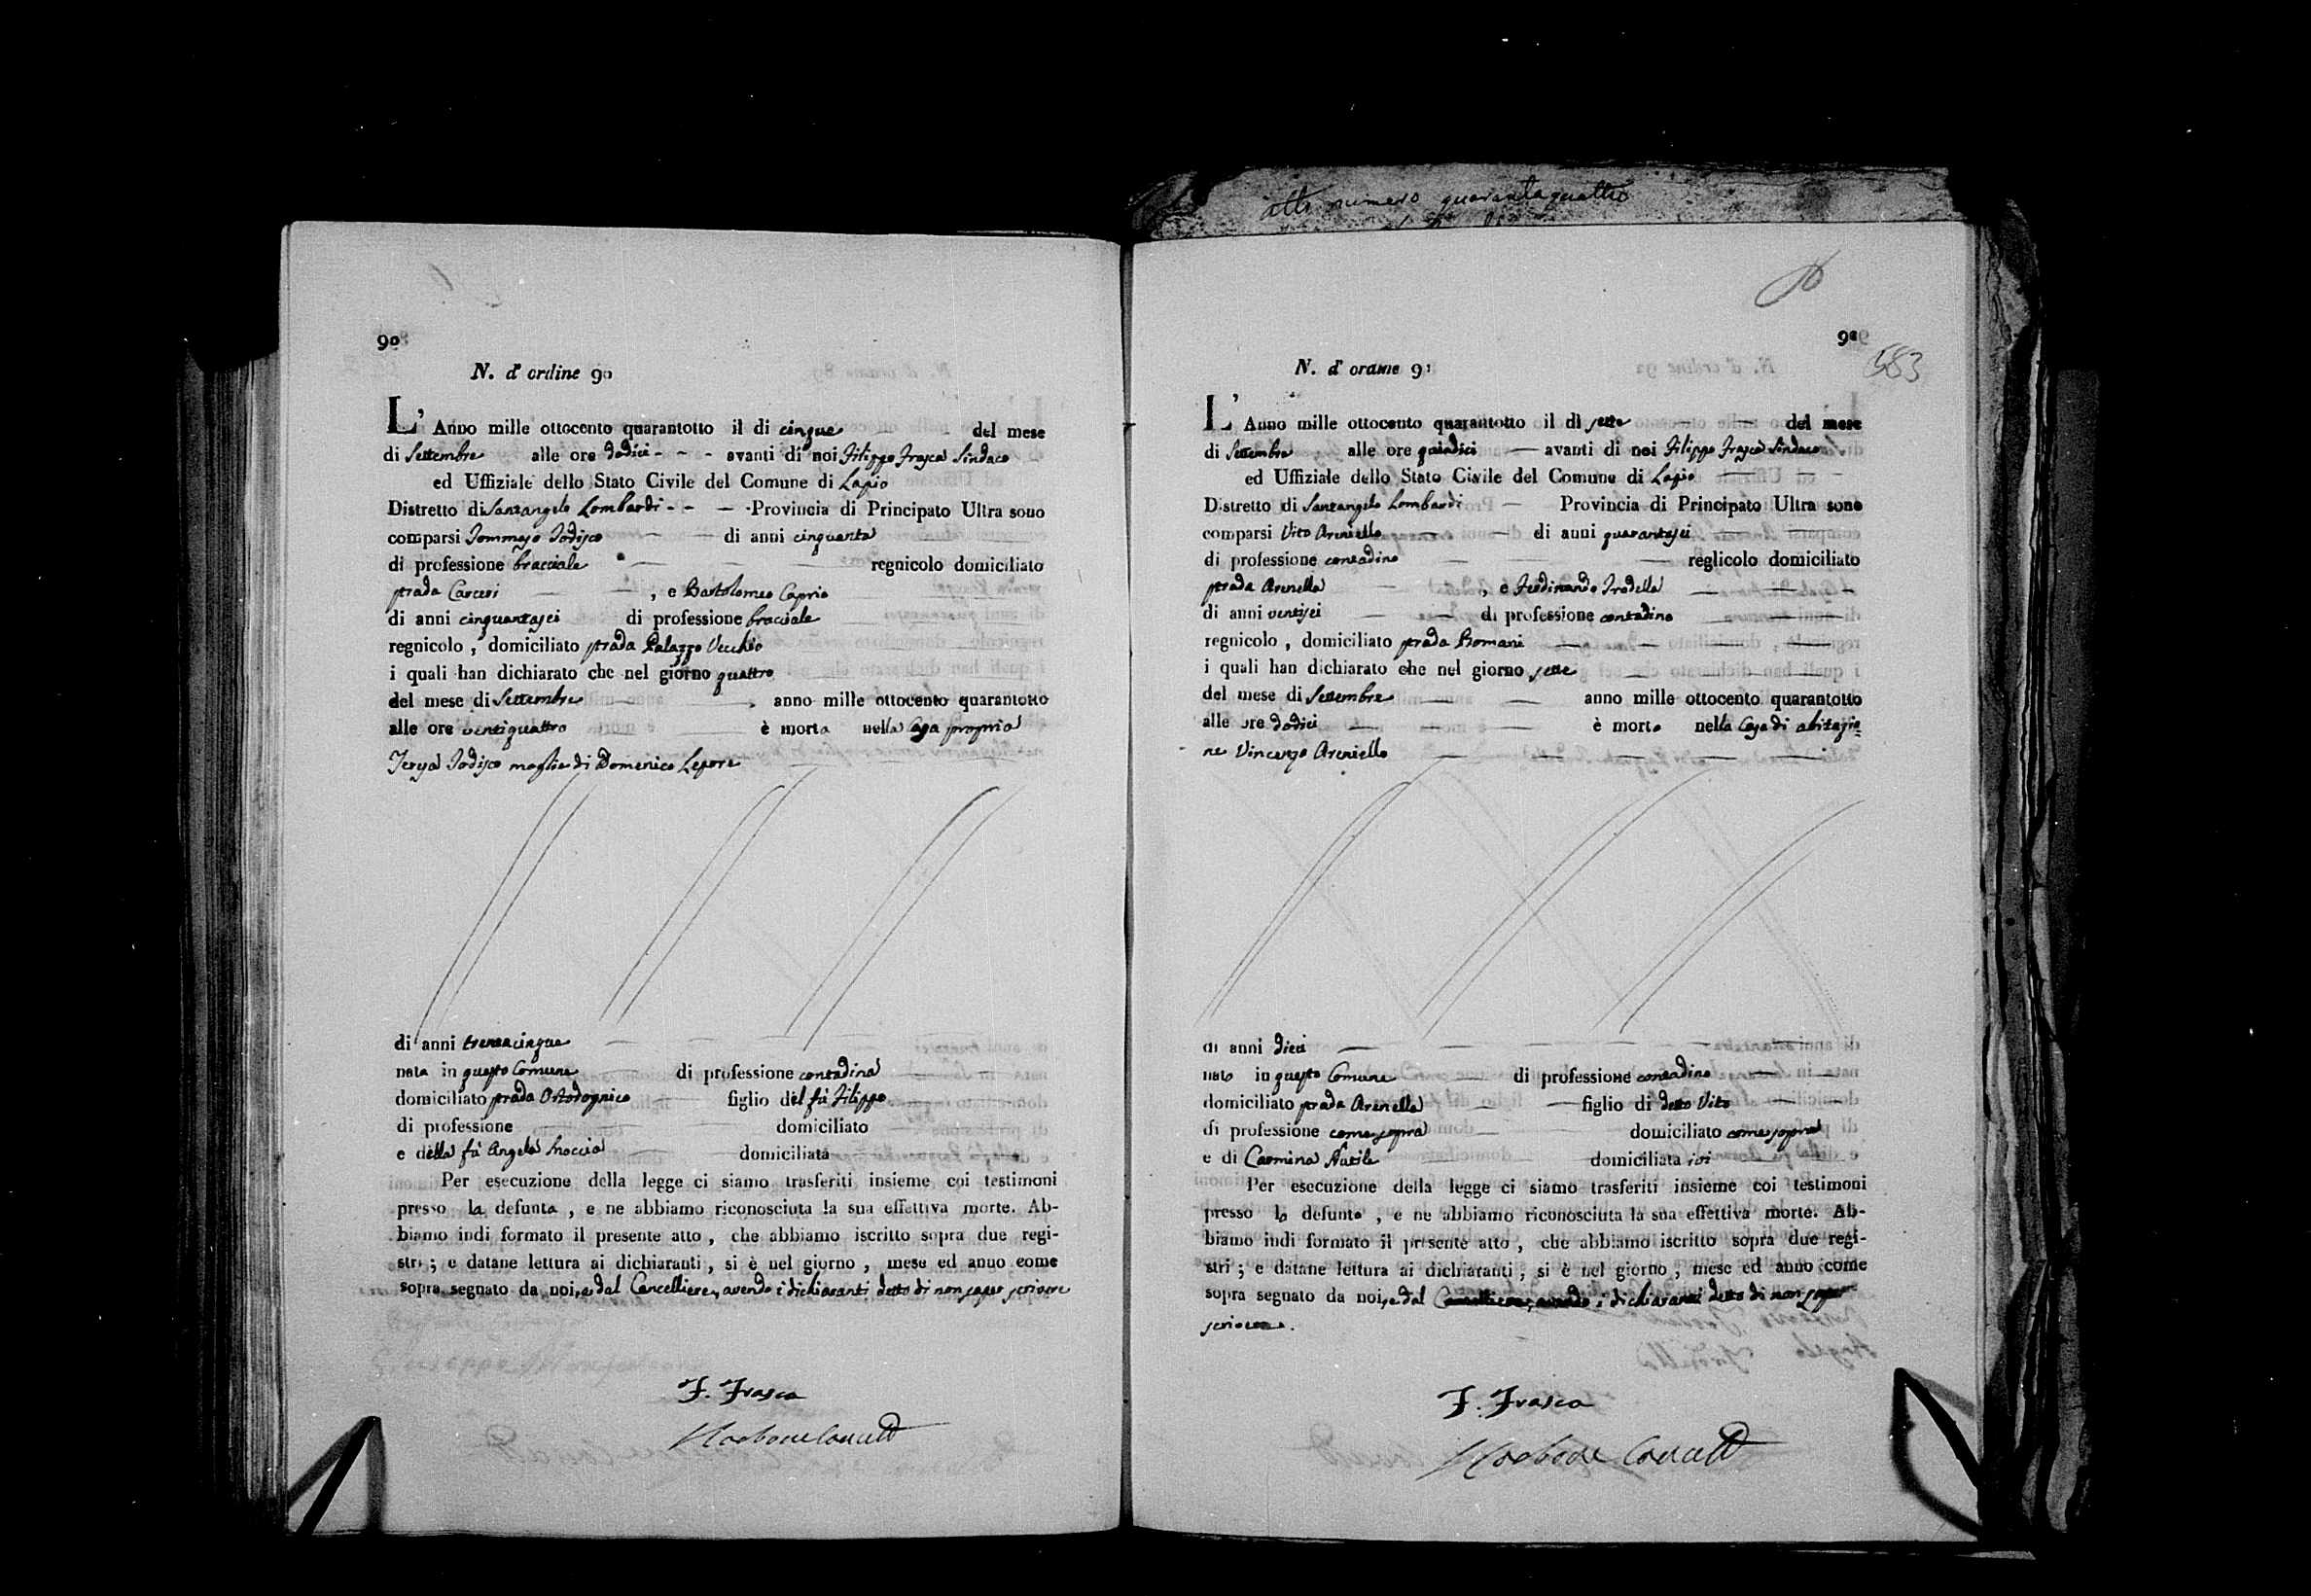 atto numero quarantaquattro
90
N. d' ordine 90
L' Anno mille ottocento quarantotto il di cinque del mese
di Settembre alle ore dodici - - - avanti di noi Filippo Frasca Sindaco
ed Uffiziale dello Stato Civile del Comune di Lapio
Distretto di Santangelo Lombardi - - — Provincia di Principato Ultra sono
comparsi Tommaso Jodisco — — di anni cinquanta
di professione bracciale — — — regnicolo domiciliato
strada Carceri — — , e Bartolomeo Caprio
di anni cinquantasei di professione bracciale
regnicolo , domiciliato strada Palazzo Vecchio
i quali han dichiarato che nel giorno quattro
del mese di Settembre — anno mille ottocento quarantotto
alle ore ventiquattro è morta nella Casa propria
Teresa Jodisco moglie di Domenico Lepore
di anni trentacinque
nata in questo Comune — di professione contadina
domiciliato strada Ortodognico — figlio del fù Filippo
di professione domiciliato
e della fù Angela domiciliata
Per esecuzione della legge ci siamo trasferiti insieme coi testimoni
presso la defunta , e ne abbiamo riconosciuta la sua effettiva morte. Ab-
biamo indi formato il presente atto , che abbiamo iscritto sopra due regi-
stri ; e datane lettura ai dichiaranti , si è nel giorno , mese ed anno come
sopra segnato da noi, e dal Cancelliere, avendo i dichiaranti detto di non saper scrivere
F. Frasca
91
583
N. d' ordine 91
L' Anno mille ottocento quarantotto il di sette — — del mese
di Settembre alle ore quindici — avanti di noi Filippo Frasca Sindaco
ed Uffiziale dello Stato Civile del Comune di Lapio
Distretto di Santangelo Lombardi — Provincia di Principato Ultra sono
comparsi Vito Areniello — — di anni quarantasei
di professione contadino — — — reglicolo domiciliato
strada Arenella — , e Ferdinando Trodella — — —
di anni ventisei — — di professione contadino
regnicolo , domiciliato strada Romani — — —
i quali han dichiarato che nel giorno sette — —
del mese di Settembre — — anno mille ottocento quarantotto
alle ore dodici — — — è morto nella Casa di abitazio=
ne Vincenzo Areniello — — — — —
di anni dieci — — — — —
nato in questo Comune — di professione contadino — —
domiciliato strada Arenella — — figlio di detto Vito — —
di professione come sopra — domiciliato come sopra
e di Carmina Autile — — domiciliata ivi — —
Per esecuzione della legge ci siamo trasferiti insieme coi testimoni
presso lo defunto , e ne abbiamo riconosciuta la sua effettiva morte. Ab-
biamo indi formato il presente atto , che abbiamo iscritto sopra due regi-
stri ; e datane lettura ai dichiaranti , si è nel giorno , mese ed anno come
sopra segnato da noi, e dal Cancelliere, avendo i dichiaranti detto di non saper
scrivere.
F. Frasca